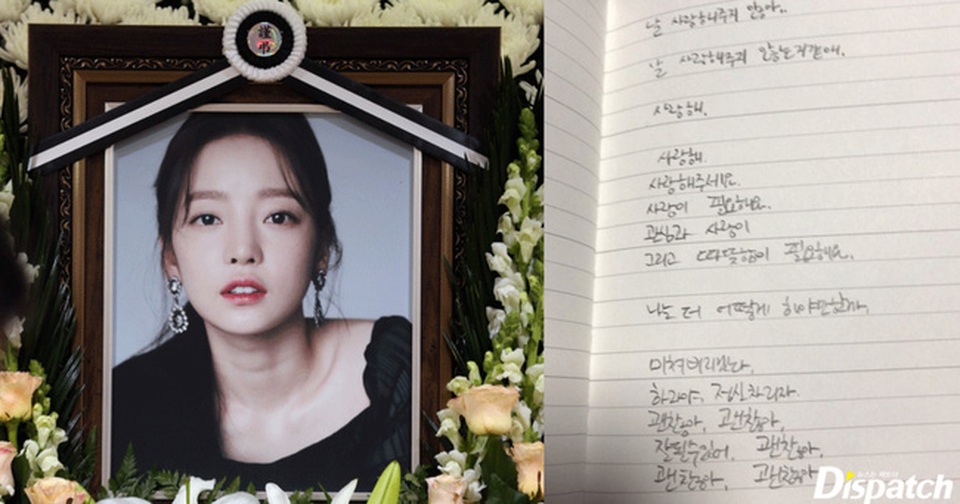 謹弔
날 사랑해주지 않아..
날 사랑해주지 않는거같애.
사랑해.
사랑해.
사랑해주세요.
사랑이 필요해요.
관심과 사랑이
그리고 따뜻함이 필요해요.
나는 더 어떻게 해야만할까.
미쳐버리겠다.
하라야, 정신차리자.
괜찮아, 괜찮아,
잘될수있어, 괜찮아,
괜찮아, 괜찮아
Dispatch